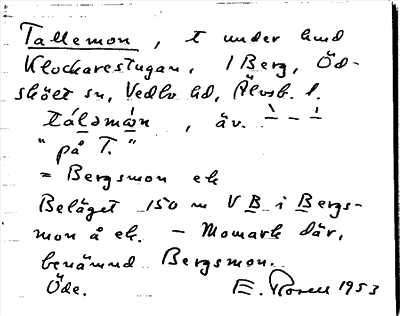 Tallemon, t under hmd
Klockarestugan, 1 Berg, Öd-
skölt sn, Vedbo hd, Älvsb. l.
tál̀smàn, äv. ` – ´
"på T."
= Bergsmon ek
Beläget 150 m V B i Bergs-
mon å ek. – Momark där,
benämnd Bergsmon.
Öde. E. Rosell 1953